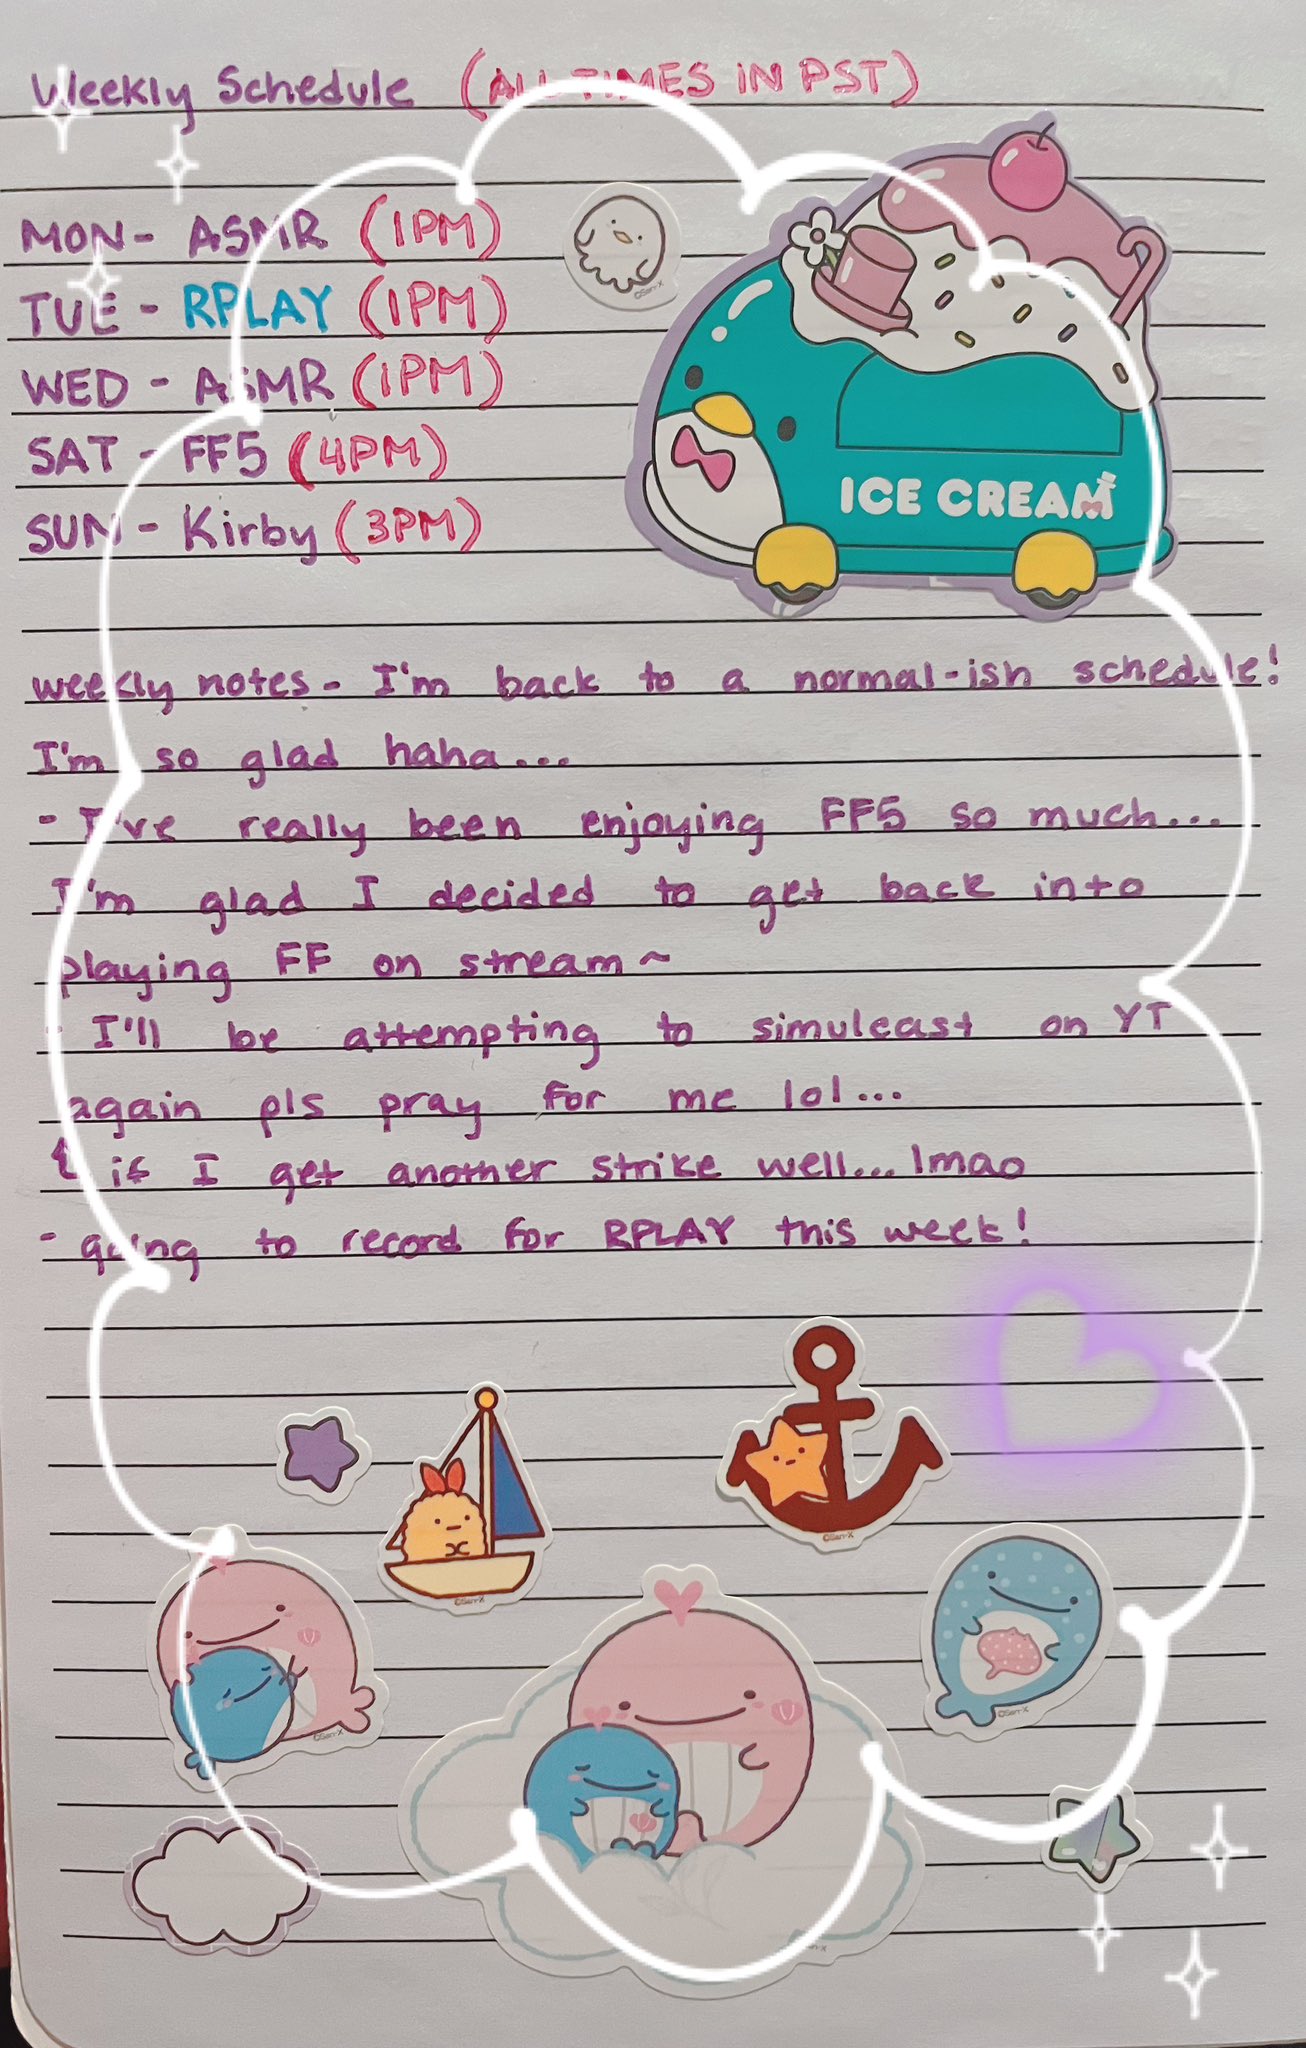 Weekly Schedule (ALL TIMES IN PST)
MON- ASMR (1PM)
TUE - RPLAY (1PM)
WED - ASMR (1PM)
SAT - FF5 (4PM)
SUN - Kirby (3PM)
ICE CREAM
weekly notes - I'm back to a normal-ish schedule!
I'm so glad haha...
- I've really been enjoying FF5 so much...
I'm glad I decided to get back into
playing FF on stream~
- I'll be attempting to simulcast on YT
again pls pray for me lol...
if I get another strike well... lmao
- going to record for RPLAY this week!
©San-X
©San-X
©San-X
©San-X
©San-X